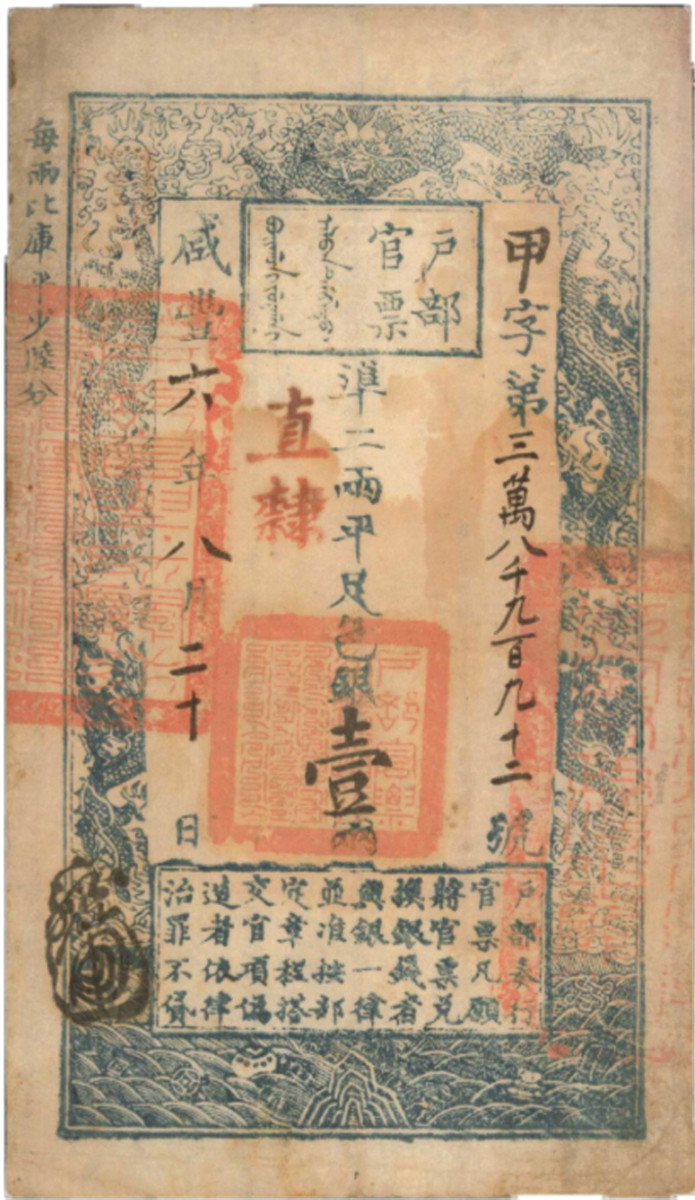 甲字第三萬八千九百九十二號
户部
官票
準二兩平足色銀壹兩
直隸
咸豐六年八月二十日
每兩比庫平少陸分
户部奏行
官票凡願
將官票兌
換銀錢者
與銀一律
並准按部
定章程搭
交官項偽
造者依律
治罪不貸